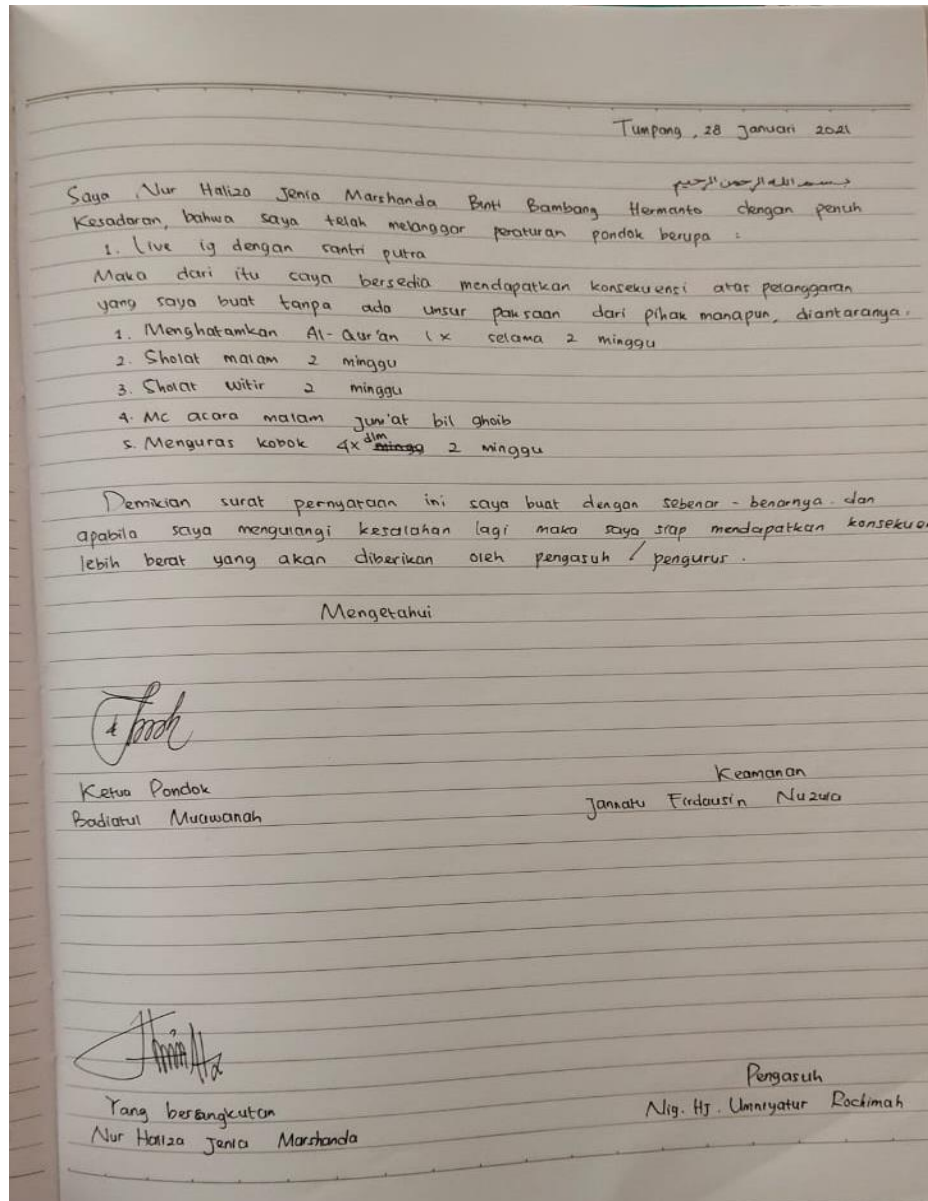 Tumpang, 28 Januari 2021
بسم الله الرحمن الرحيم
Saya Nur Haliza Jenia Marshanda Binti Bambang Hermanto dengan penuh
Kesadaran, bahwa saya telah melanggar peraturan pondok berupa :
1. Live ig dengan santri putra
Maka dari itu saya bersedia mendapatkan konsekuensi atas pelanggaran
yang saya buat tanpa ada unsur paksaan dari pihak manapun, diantaranya.
1. Menghatamkan Al-Qur'an 1x selama 2 minggu
2. Sholat malam 2 minggu
3. Sholat witir 2 minggu
4. Mc acara malam Jum'at bil ghoib
5. Menguras kobok 4x dlm 2 minggu
Demikian surat pernyataan ini saya buat dengan sebenar - benarnya. dan
apabila saya mengulangi kesalahan lagi maka saya siap mendapatkan konsekue
lebih berat yang akan diberikan oleh pengasuh / pengurus.
Mengetahui
Ketua Pondok
Badiatul Muawanah
Keamanan
Jannatu Firdausin Nuzula
Yang bersangkutan
Nur Haliza Jenia Marshanda
Pengasuh
Nig. Hj. Umniyatur Rochimah